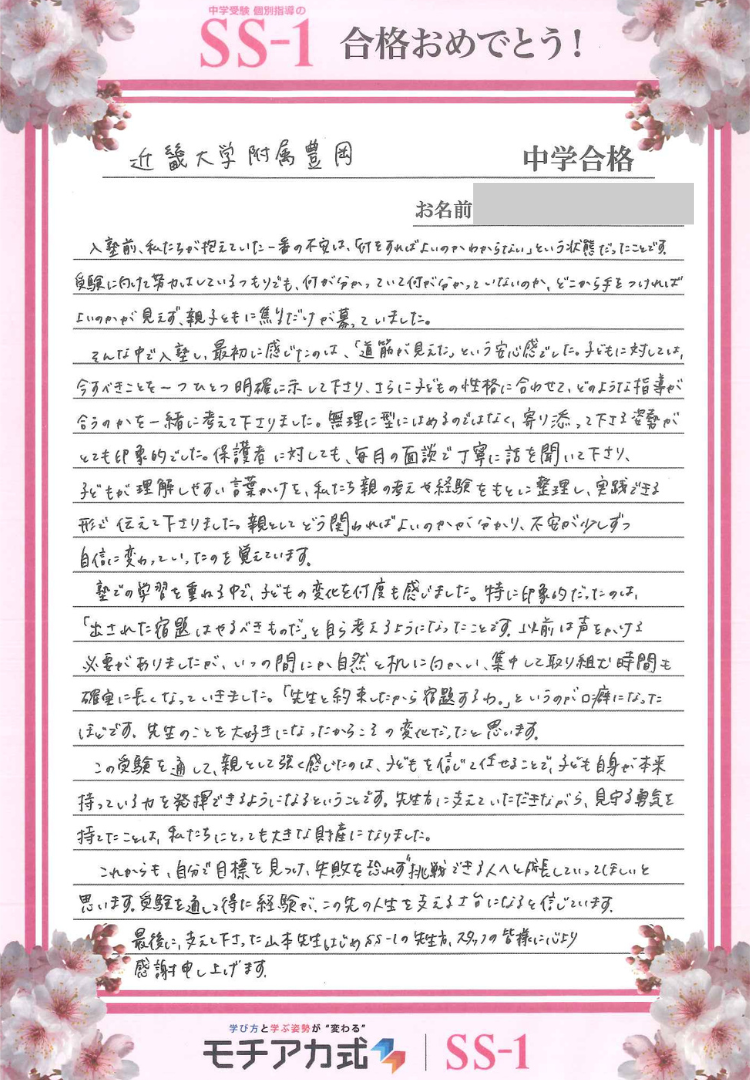 中学受験 個別指導の
SS-1 合格おめでとう!
近畿大学附属豊岡 中学合格
お名前
入塾前、私たちが抱えていた一番の不安は、「何をすればよいのかわからない」という状態だったことです。
受験に向けて努力はしているつもりでも、何が分かっていて何が分かっていないのか、どこから手をつければ
よいのかが見えず、親子ともに焦りだけが募っていました。
そんな中で入塾し、最初に感じたのは、「道筋が見えた」という安心感でした。子どもに対しては、
今すべきことを一つひとつ明確に示して下さり、さらに子どもの性格に合わせて、どのような指導が
合うのかを一緒に考えて下さりました。無理に型にはめるのではなく、寄り添って下さる姿勢が
とても印象的でした。保護者に対しても、毎月の面談で丁寧に話を聞いて下さり、
子どもが理解しやすい言葉かけを、私たち親の考えや経験をもとに整理し、実践できる
形で伝えて下さりました。親としてどう関わればよいのかが分かり、不安が少しずつ
自信に変わっていったのを覚えています。
塾での学習を重ねる中で、子どもの変化を何度も感じました。特に印象的だったのは、
「出された宿題はやるべきものだ」と自ら考えるようになったことです。以前は声をかける
必要がありましたが、いつの間にか自然と机に向かい、集中して取り組む時間も
確実に長くなっていきました。「先生と約束したから宿題するわ。」というのが口癖になった
ほどです。先生のことを大好きになったからこその変化だったと思います。
この受験を通して、親として強く感じたのは、子どもを信じて任せることで、子ども自身が本来
持っている力を発揮できるようになるということです。先生方に支えていただきながら、見守る勇気を
持てたことは、私たちにとっても大きな財産になりました。
これからも、自分で目標を見つけ、失敗を恐れず挑戦できる人へと成長していってほしいと
思います。受験を通して得た経験が、この先の人生を支える土台になると信じています。
最後に、支えて下さった山本先生はじめSS-1の先生方、スタッフの皆様に心より
感謝申し上げます。
学び方と学ぶ姿勢が“変わる”
モチアカ式 SS-1